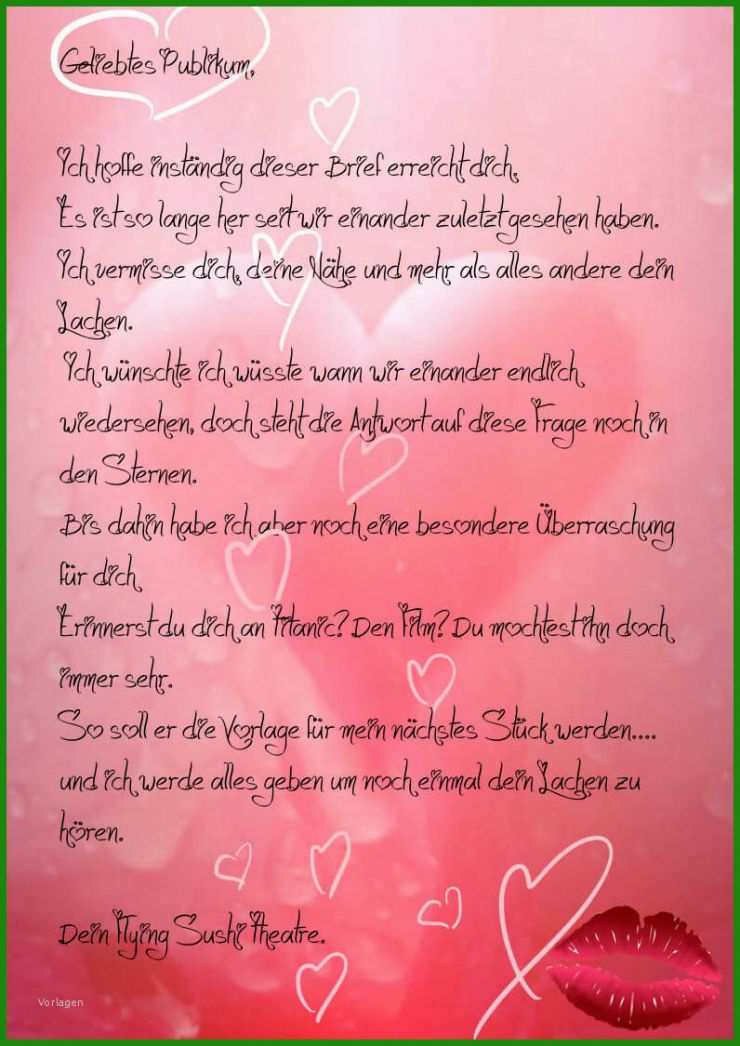 Geliebtes Publikum,
Ich hoffe inständig dieser Brief erreicht dich,
Es ist so lange her seit wir einander zuletzt gesehen haben.
Ich vermisse dich, deine Nähe und mehr als alles andere dein
Lachen.
Ich wünschte ich wüsste wann wir einander endlich
wiedersehen, doch steht die Antwort auf diese Frage noch in
den Sternen.
Bis dahin habe ich aber noch eine besondere Überraschung
für dich
Erinnerst du dich an Titanic? Den Film? Du mochtest ihn doch
immer sehr.
So soll er die Vorlage für mein nächstes Stück werden....
und ich werde alles geben um noch einmal dein Lachen zu
hören.
Dein Flying Sushi Theatre.
Vorlagen